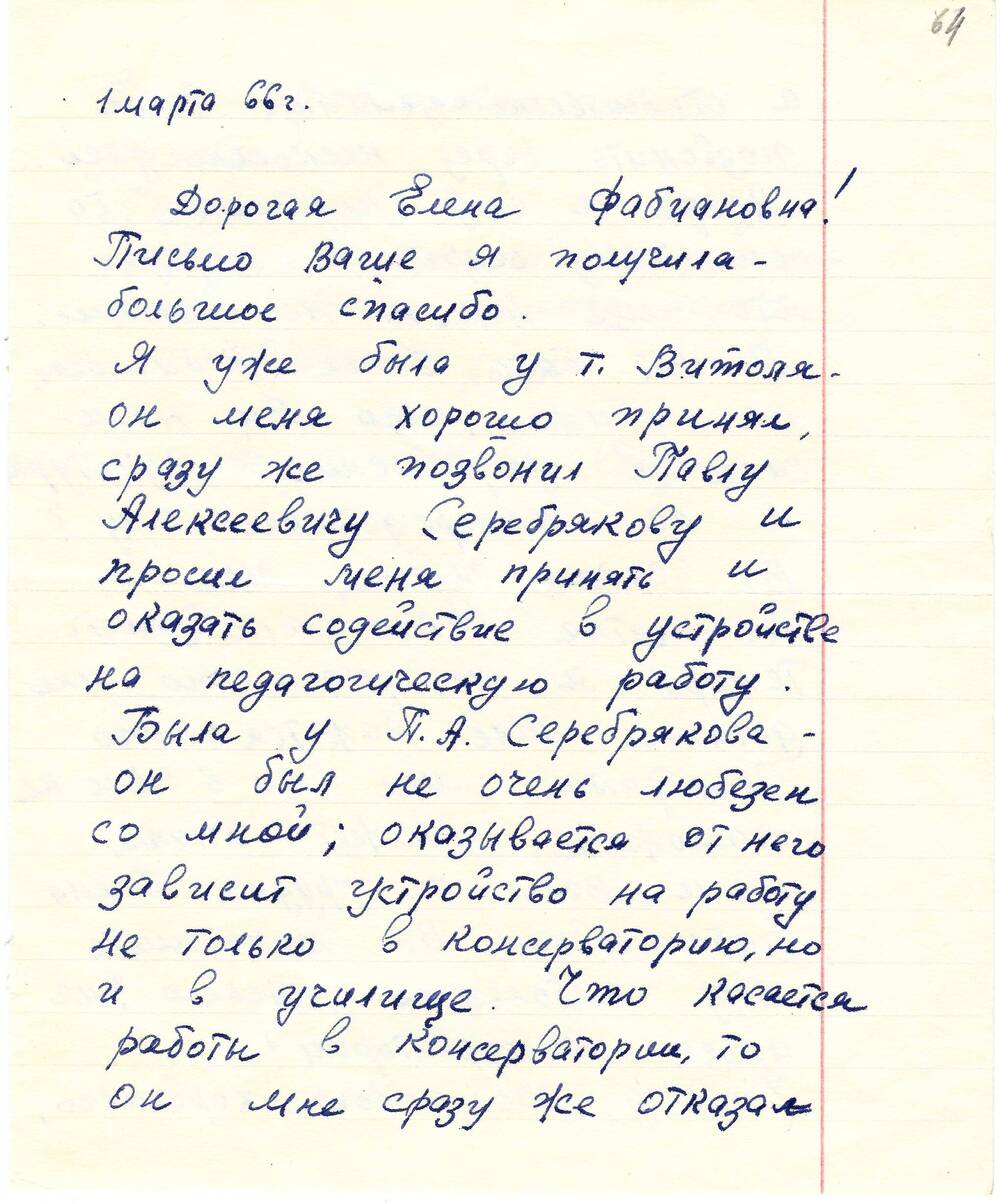 64
1 марта 66 г.
Дорогая Елена Фабиановна!
Письмо Ваше я получила -
большое спасибо.
Я уже была у т. Витоля -
он меня хорошо принял,
сразу же позвонил Павлу
Алексеевичу Серебрякову и
просил меня принять и
оказать содействие в устройстве
на педагогическую работу.
Была у П. А. Серебрякова -
он был не очень любезен
со мной; оказывается от него
зависит устройство на работу
не только в консерваторию, но
и в училище. Что касается
работы в Консерватории, то
он мне сразу же отказал